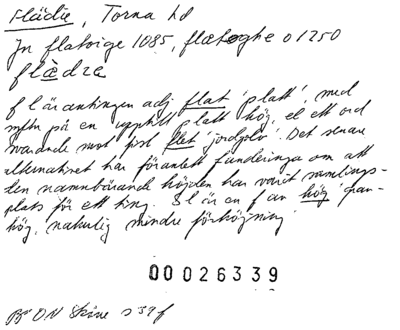 Flädie, Torna hd
In flatoige 1085, flætoghe o 1250
flædre
f l är antingen adj. flat 'platt', med
syftn på en 'upptill platt hög', el ett ord
svarande mot fist flet 'jordgolv'. Det senare
alternativet har föranlett funderingar om att
den namnbärande höjden har varit samlings-
plats för ett ting. S l är en f an hög 'grav-
hög, naturlig mindre förhöjning'
00026339
Bø ON Skåne s 39 f